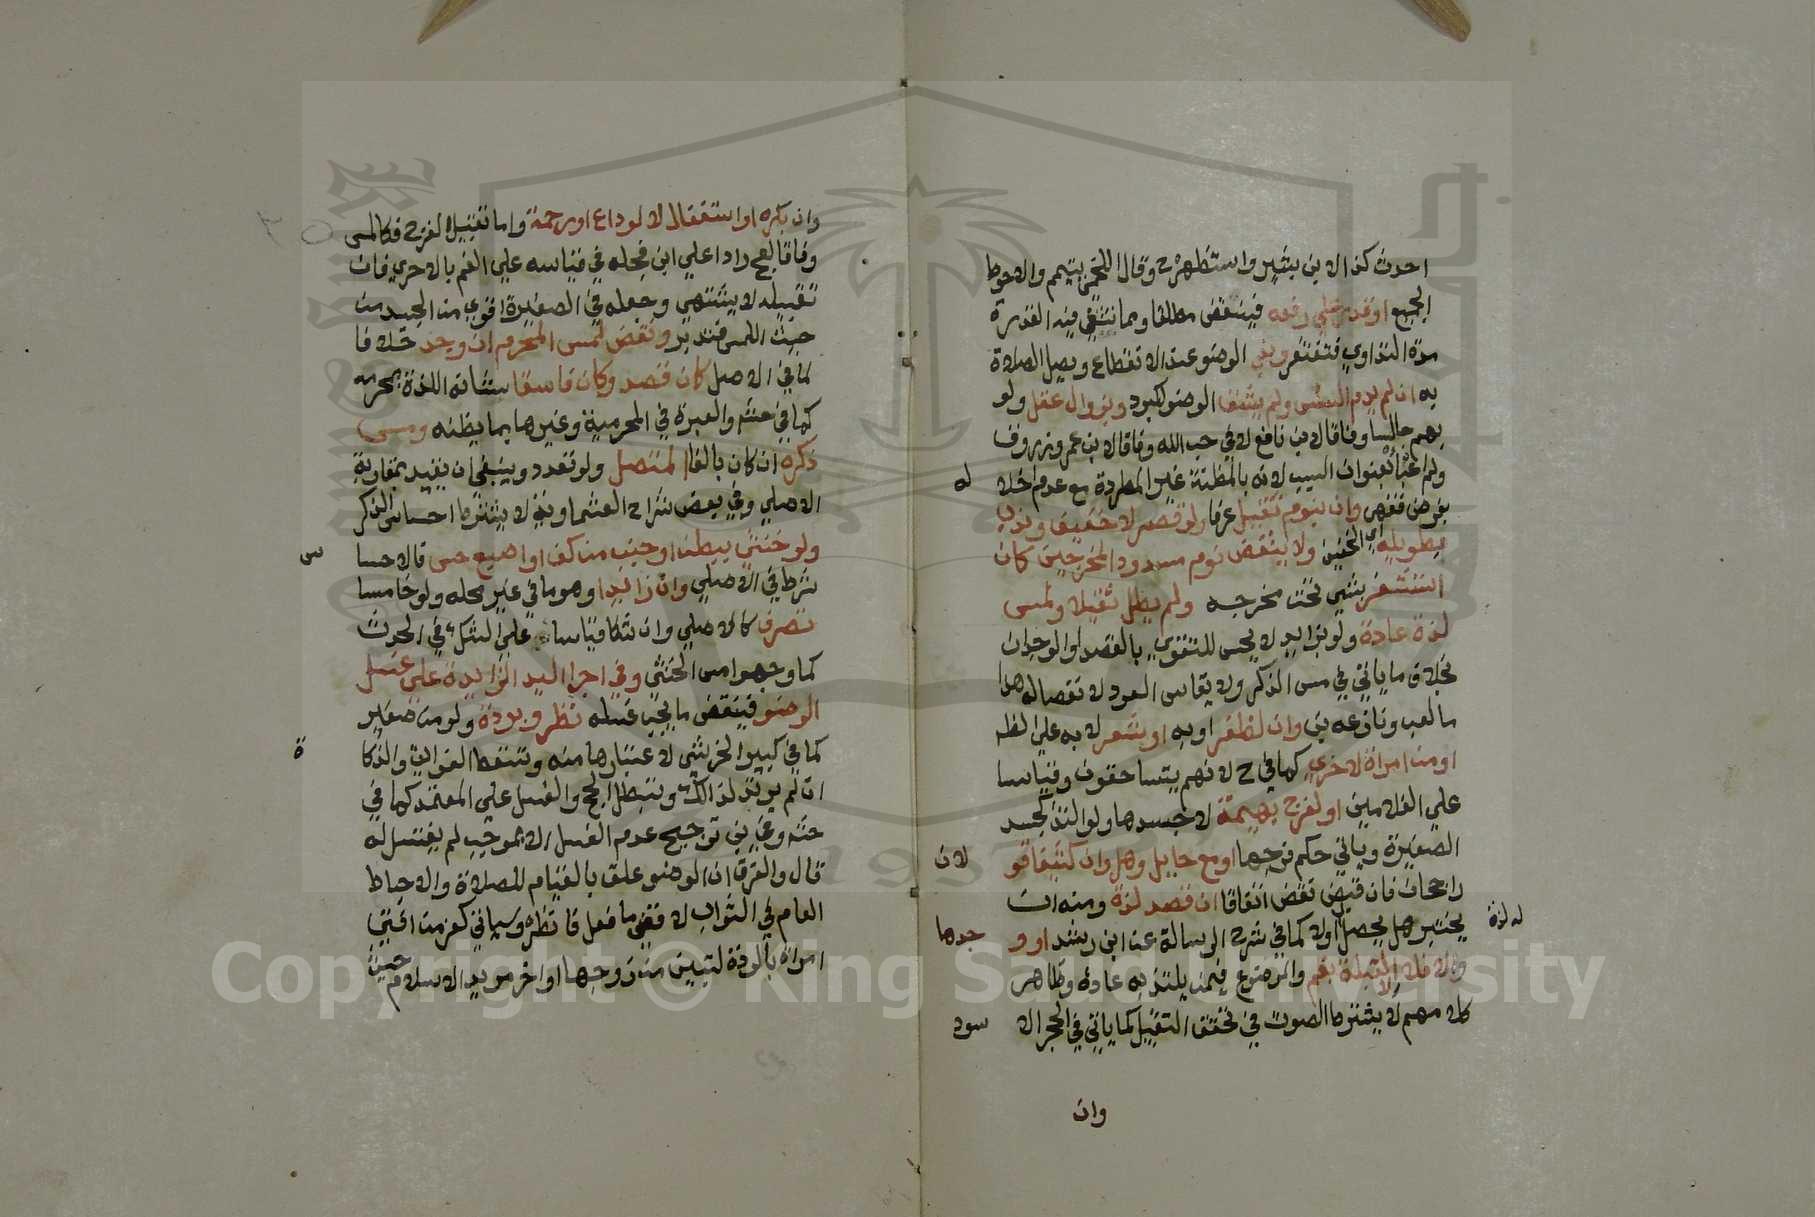 احدث كذا لابن بشير واستظهر ح وقال اللخمي يتيمم والاحوط
الجميع او قدر على رفعه فينتقض مطلقا وبما ينتفي فيه القدرة
مدة التداوي فتغتفر وبقي الوضو عند الانقطاع ويصل الصلاة
به ان لم يدم الشي ولم يشق الوضو لكبرد وبزوال عقل ولو
بهم جالسا وفاقا لابن نافع لا في حب الله وفاقا لابن عمر وزروق
ولم اعبأ
السبب لانه بالمظنة غير المطردة مع عدم
له
وان بنوم ثقيل عرفا ولو قصر لا خفيف وندب
بطويله اي الخفيف ولا ينقض نوم مسدود المخرجين كان
استثفر بشي تحت مخرجه ولم يطل ثقيلا ولمس
لذة عادة ولو بزايد لا يحس للتقوي بالقصد او الوجدان
بخلاف ما ياتي في مس الذكر ولا يقاس العود لانفصاله هذا
ما لعب ونازعه بن وان لظفر او به او بشعر لا به علي الظا
او من امراة لاخري كما في ح لانهم يتساحقون وقياسا
علي الغلامين او لفرج بهيمة لا جسدها ولو التذ كجسد
الصغيرة وياتي حكم فرجها او مع حايل وهل وان كثيفا قو
لان
راجحان فان قبض نقض اتفاقا ان قصد لذة ومنه ان
يختبر هل يحصل له لذة اولا كما في شرح الرسالة عن ابن رشد او و
جدها
والا فلا الا القبلة بفم والموضوع فيمن يلتذ به عادة وظاهر
كلامهم لا يشترط الصوت في تحقق التقبيل كما ياتي في الحجر الا
سود
وان
وان بكره او استغفال لا لوداع او رحمة واما تقبيل الفرج فكالمس
وفاقا لعج رادا علي ابن فجله في قياسه علي الفم بالاحري فان
تقبيله لا يشتهي وجعله في الصغيرة اقوي من الجسد من
حيث اللمس فتدبر ونقض لمس المحرم ان وجد خلافا
لما في الاصل كان قصد وكان فاسقا شانه اللذة بمحرمه
كما في عشم والعبرة في المحرمية وغيرها بما يظنه ومس
ذكره ان كان بالغا المتصل ولو تعدد وينبغي ان يقيد بمقاربة
الاصلي وفي بعض شراح العشماوية لا يشترط احساس الذكر
ولو خنثي ببطن او جنب من كف او اصبع حس قالا حسا
س
شرط في الاصلي وان زايدا وهو ما في غير محله ولو خامسا
تصرف كالاصلي وان شكا قياسا علي الشك في الحدث
كما وجهوا مس الخنثي وفي اجزا اليد الزايدة علي غسل
الوضو فينقض ما يجب غسله نظر وبردة ولو من صغير
ة
كما في كبير الخرشي لاعتبارها منه وتسقط الفوايت والزكا
ان لم يرتد لذلك وتبطل الحج والغسل علي المعتمد كما في
حش وغيره بن ترجيح عدم الغسل الا بموجب لم يغتسل له
قال والفرق ان الوضو علق بالقيام للصلاة والاحباط
العام في الثواب لا فيما فعل فانظره وسياتي كفر من افتي
امراة بالردة لتبين من زوجها او اخر مريد الاسلام حيث